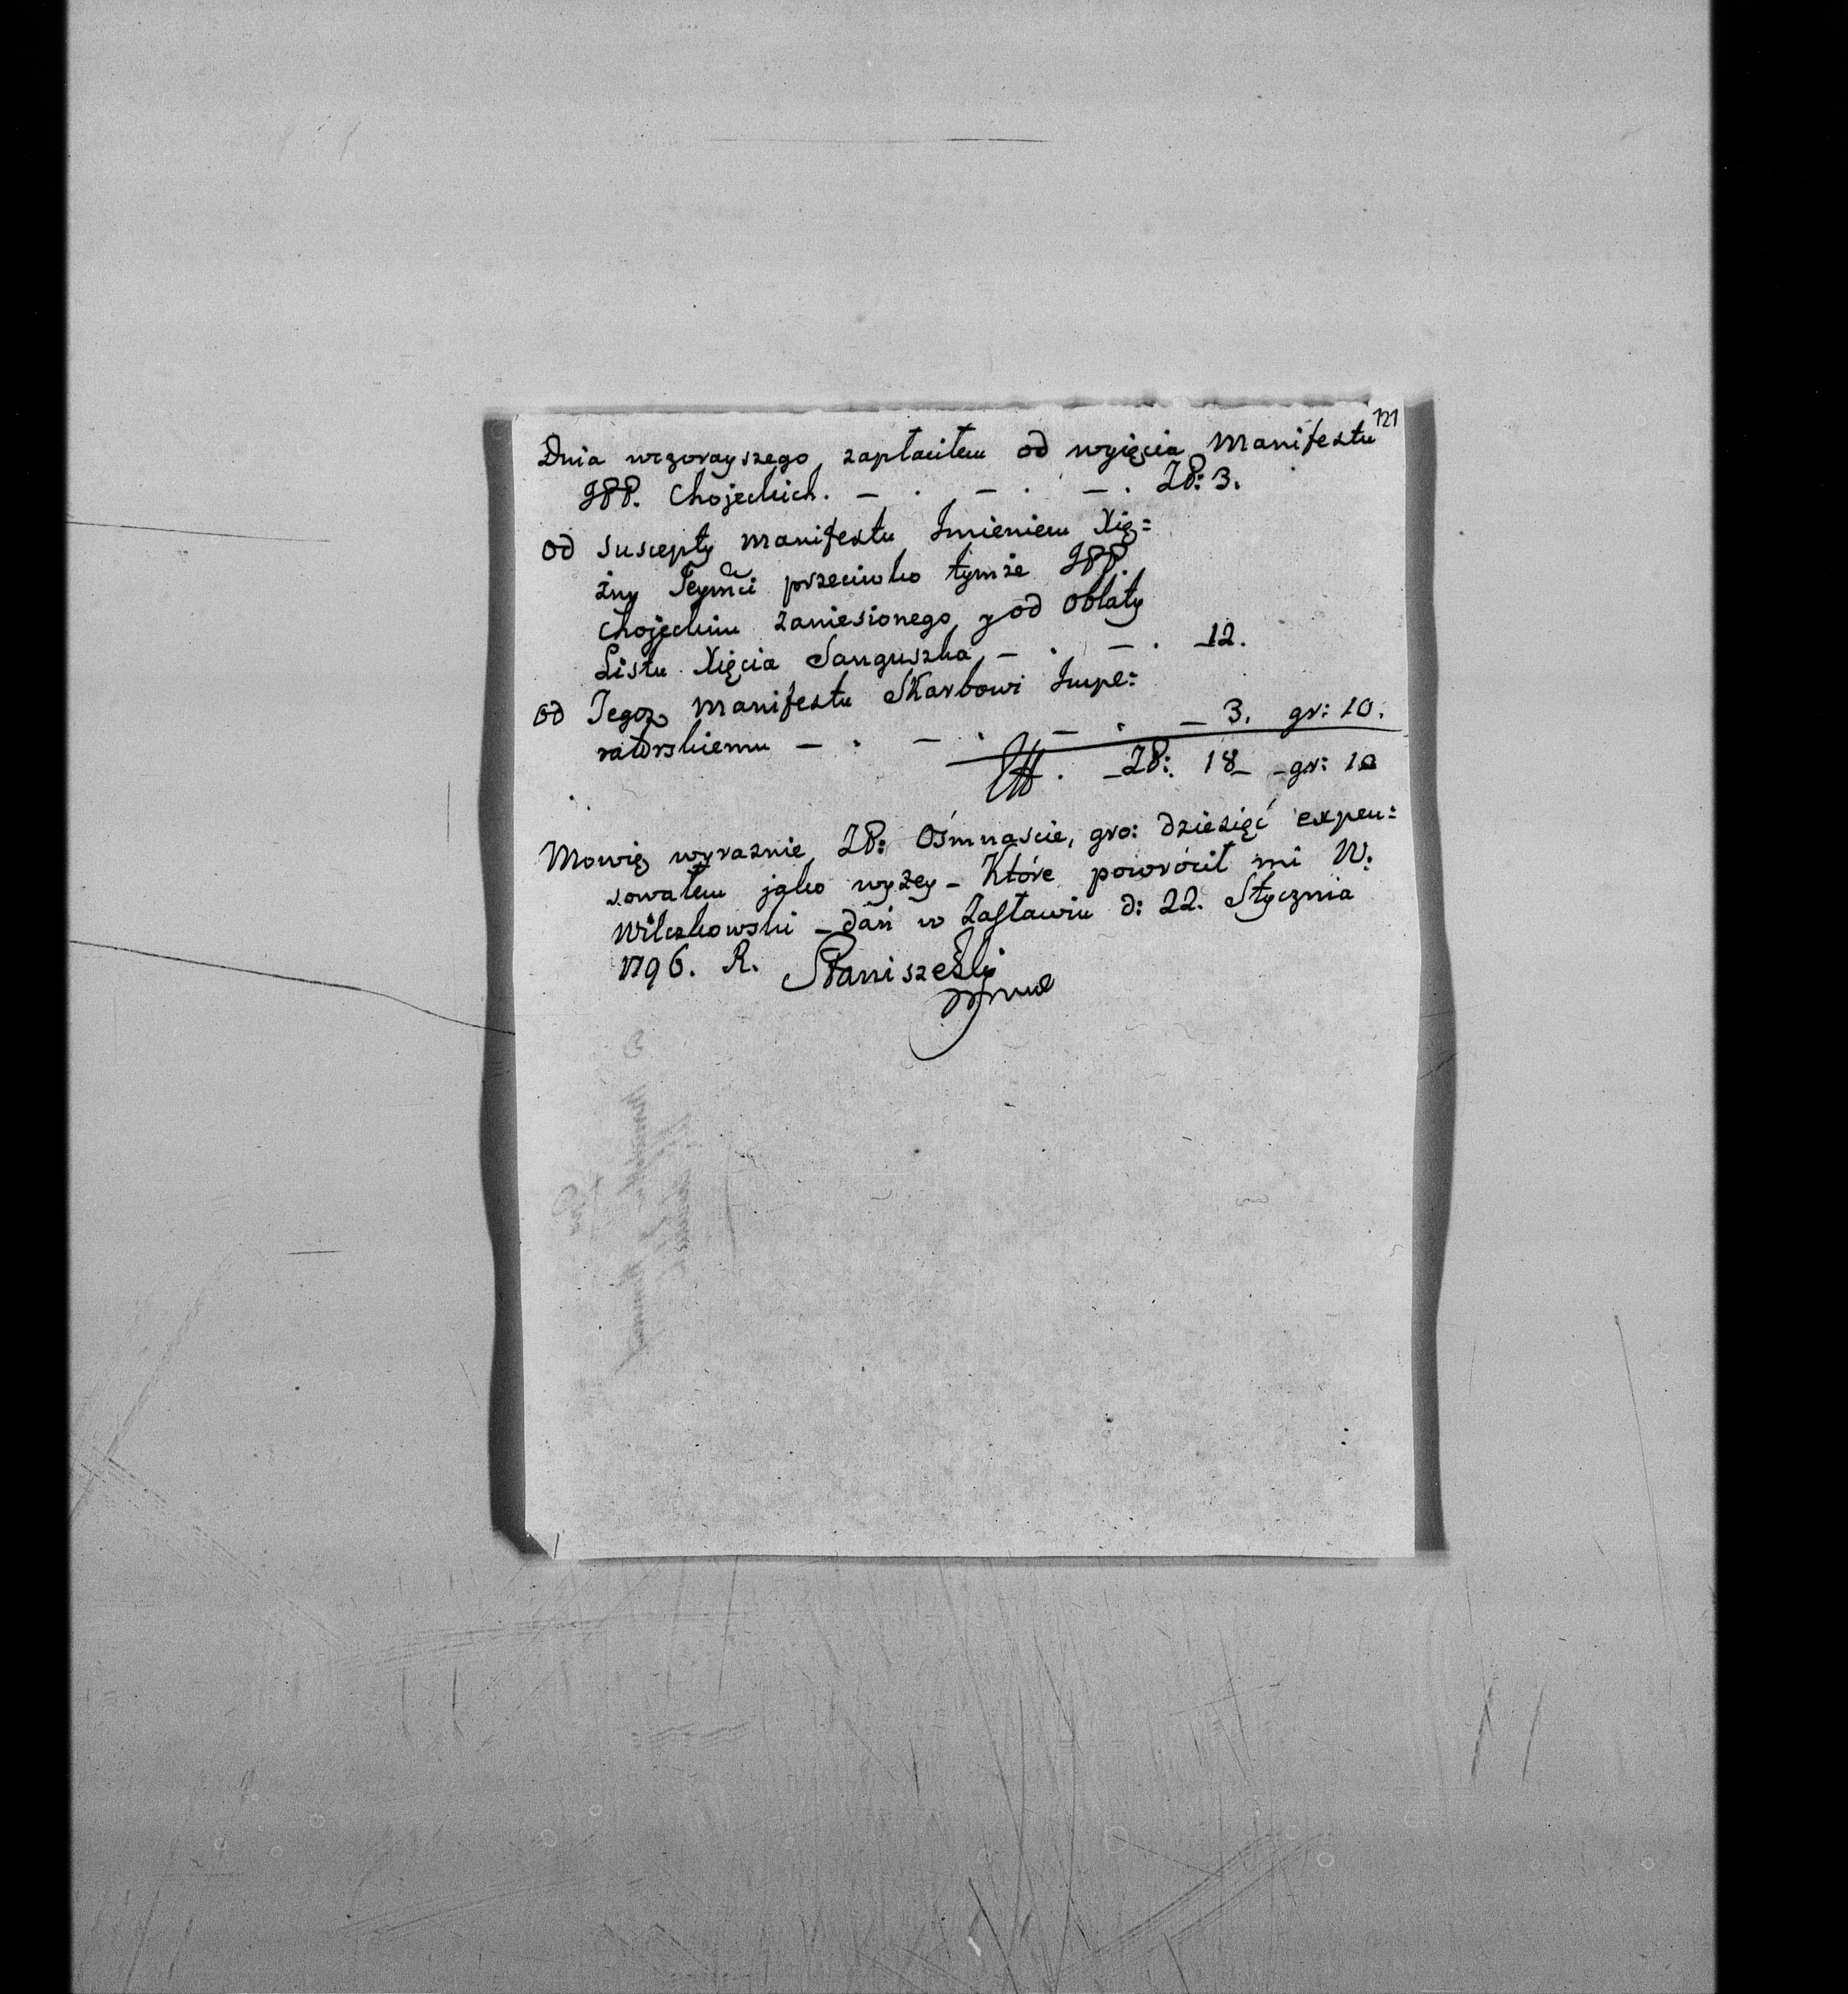 121
Dnia wczorayszego zapłaciłem od wyięcia Manifestu
JPP. Chojeckich. — . — . — . ZP: 3.
od suscepty Manifestu Imieniem Xię=
żny Jeymci przeciwko tymże JPP.
Chojeckim zaniesionego, y od Oblaty
Listu Xięcia Sanguszka — . — . — 12.
od Tegoż Manifestu Skarbowi Impe:
ratorskiemu — . — . — . — 3. gr: 10.
ZP: 18 — gr: 10
Mowię wyraznie ZP: Ośmnaście, gro: dziesięć expen:
sowałem jako wyżey — Które powrócił mi W.
Wilczkowski — dań w Zasławiu d: 22. Stycznia
1796. R. Staniszewski